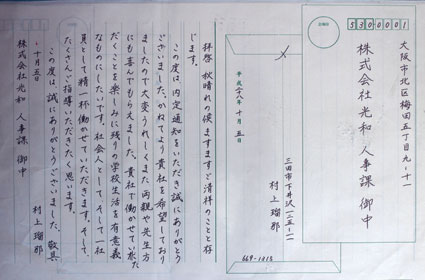 5300001
大阪市北区梅田五丁目九ノ十一
株式会社光和 人事課 御中
〆
平成二十八年 十月 五日
三田市下井沢一二五ー一
村上 瑠那
669-1313
拝啓 秋晴れの候ますますご清祥のことと存
じます。
この度は、内定通知をいただき誠にありがとう
ございました。かねてより貴社を希望しており
ましたので大変うれしくまた両親や先生方
にも喜んでもらえました。貴社で働かせていた
だくことを楽しみに残りの学校生活を有意義
なものにしたいです。社会人として、そして一社
員として精一杯働かせていただきます。そして、
たくさんご指導いただきたく思います。
この度は、誠にありがとうございました。敬具
十月五日
村上 瑠那
株式会社光和 人事課 御中